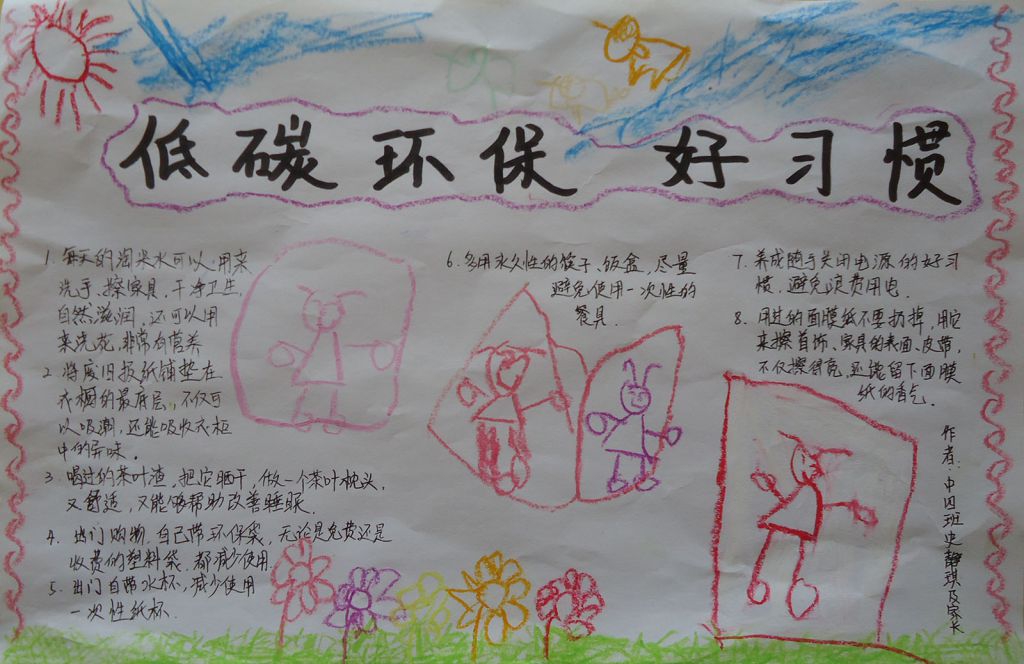 低碳环保 好习惯
1. 每天的淘米水可以用来
洗手、擦家具,干净卫生,
自然滋润,还可以用
来浇花,非常有营养
2. 将废旧报纸铺垫在
衣橱的最底层,不仅可
以吸潮,还能吸收衣柜
中的异味。
3. 喝过的茶叶渣,把它晒干,做一个茶叶枕头,
又舒适,又能够帮助改善睡眠.
4. 出门购物,自己带环保袋,无论是免费还是
收费的塑料袋,都减少使用.
5. 出门自带水杯,减少使用
一次性纸杯.
6. 多用永久性的筷子、饭盒,尽量
避免使用一次性的
餐具.
7. 养成随手关闭电源的好习
惯,避免浪费用电.
8. 用过的面膜纸不要扔掉,用它
来擦首饰、家具的表面、皮带,
不仅擦得亮,还能留下面膜
纸的香气.
作者:中四班史静琪及家长